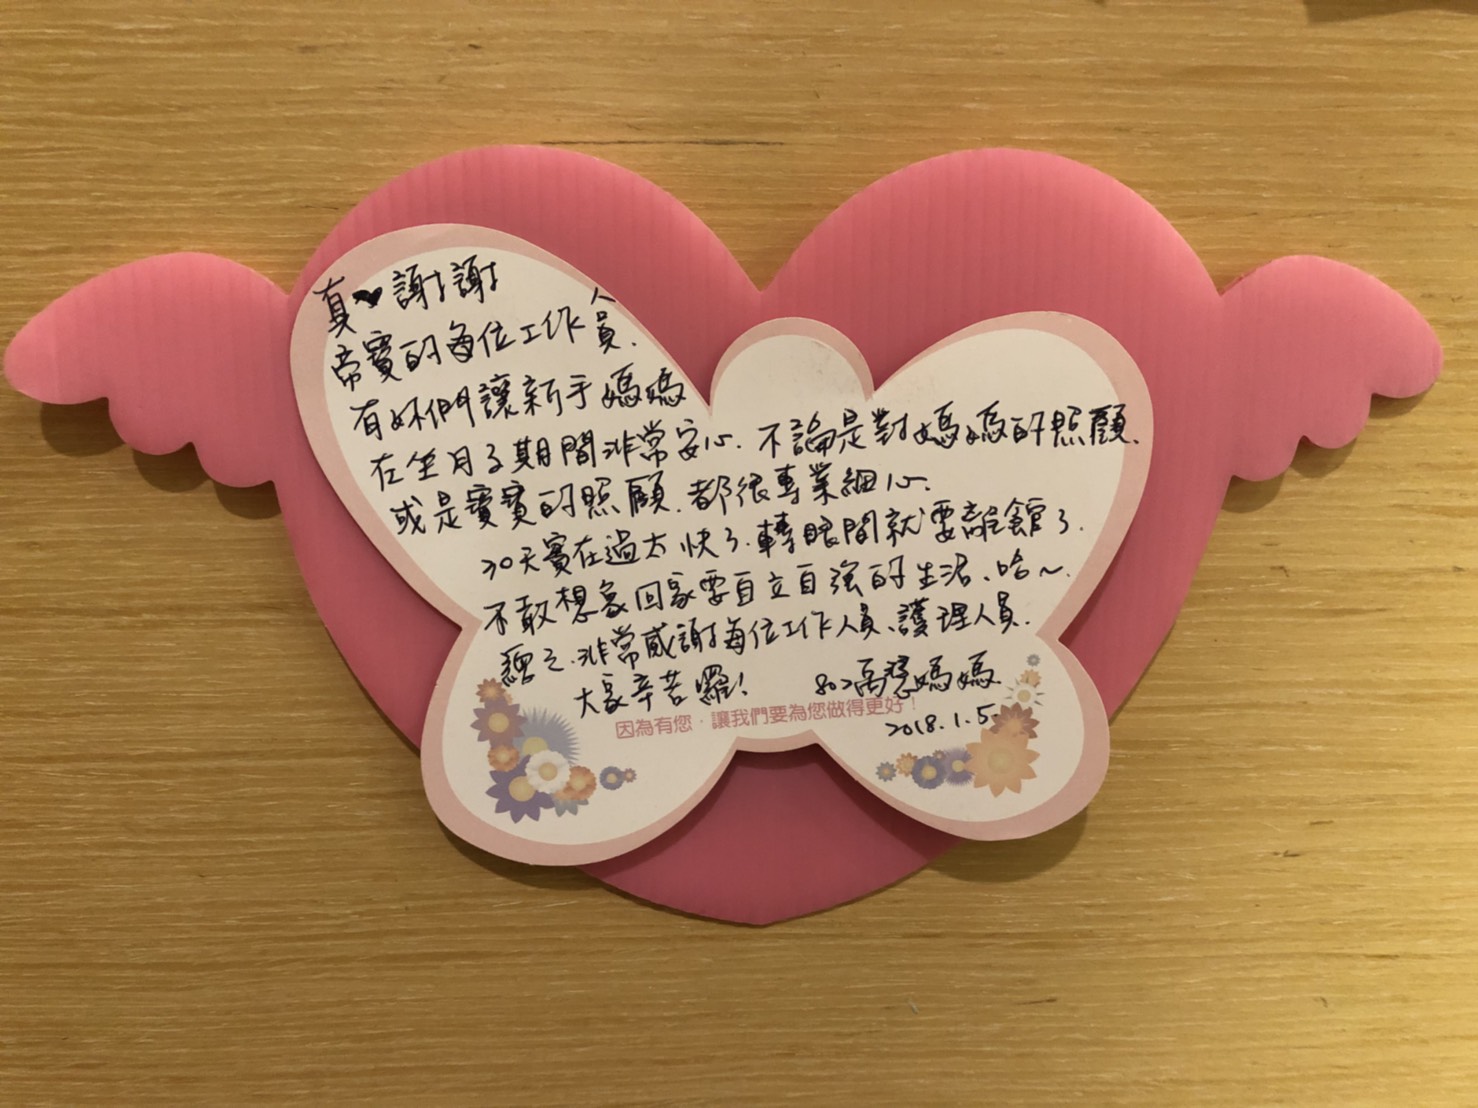 真♥謝謝
帝寶的每位工作人員.
有妳們讓新手媽媽
在坐月子期間非常安心. 不論是對媽媽的照顧.
或是寶寶的照顧. 都很專業細心.
30天實在過太快了. 轉眼間就要離館了.
不敢想象回家要自立自強的生活、哈~.
總之. 非常感謝每位工作人員、護理人員.
大家辛苦囉!
802 媽媽
2018.1.5.
因為有您‧讓我們要為您做得更好!